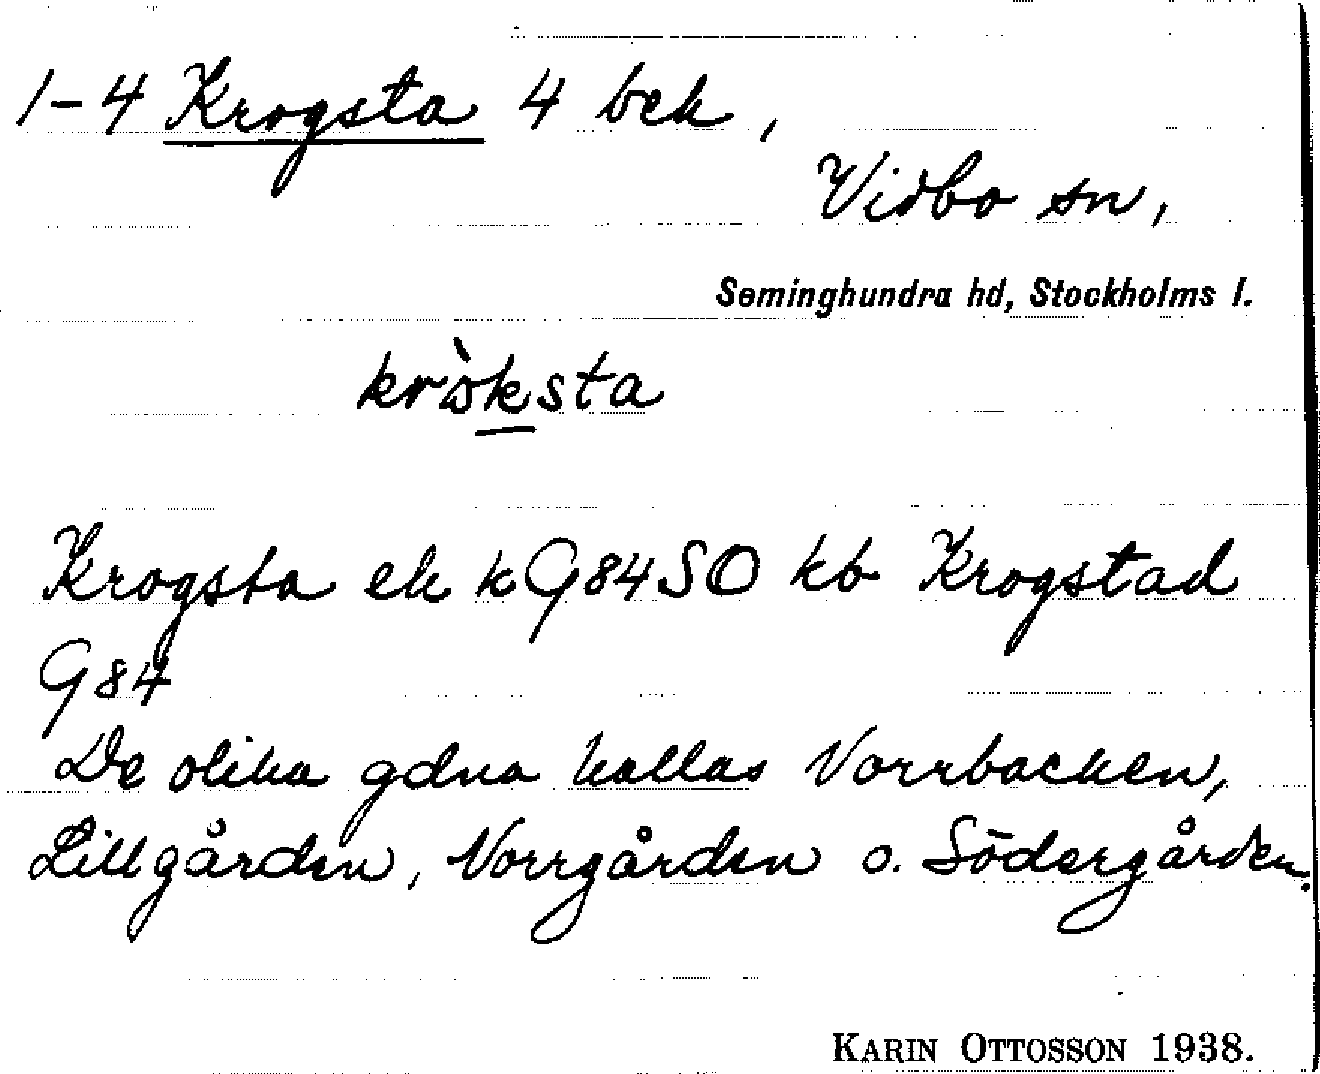 1-4 Krogsta 4 bek,
Vidbo sn,
Seminghundra hd, Stockholms l.
krò̀ksta
Krogsta ek k G84SO kb Krogstad
G84
De olika gdna kallas Norrbacken,
Lillgården, Norrgården o. Södergården.
KARIN OTTOSSON 1938.